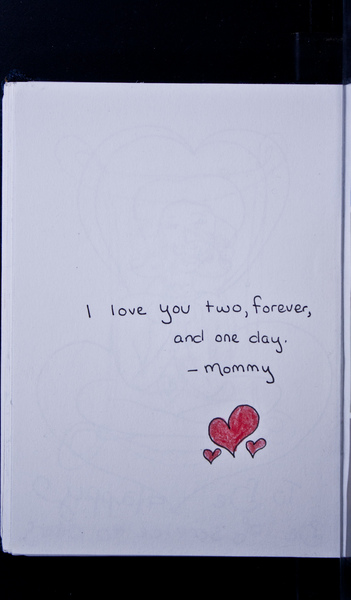 I love you two, forever,
and one day.
- Mommy